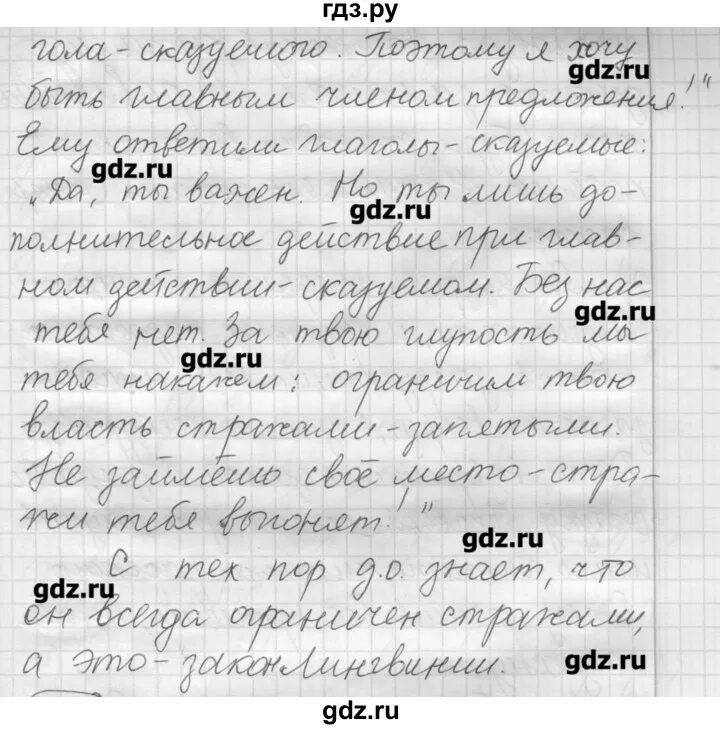 гдз.ру
гола-сказуемого. Поэтому я хочу
gdz.ru
быть главным членом предложения!"
Ему ответили глаголы-сказуемые:
gdz.ru
„Да, ты важен. Но ты лишь до-
gdz.ru
полнительное действие при глав-
ном действии-сказуемом. Без нас
gdz.ru
тебя нет. За твою глупость мы
gdz.ru
тебя накажем: ограничим твою
власть стражами-запятыми.
Не займёшь своё место-стра-
жи тебя выгонят!"
gdz.ru
С тех пор д.о. знает, что
gdz.ru
он всегда ограничен стражами,
а это-закон Лингвинии.
gdz.ru
gdz.ru